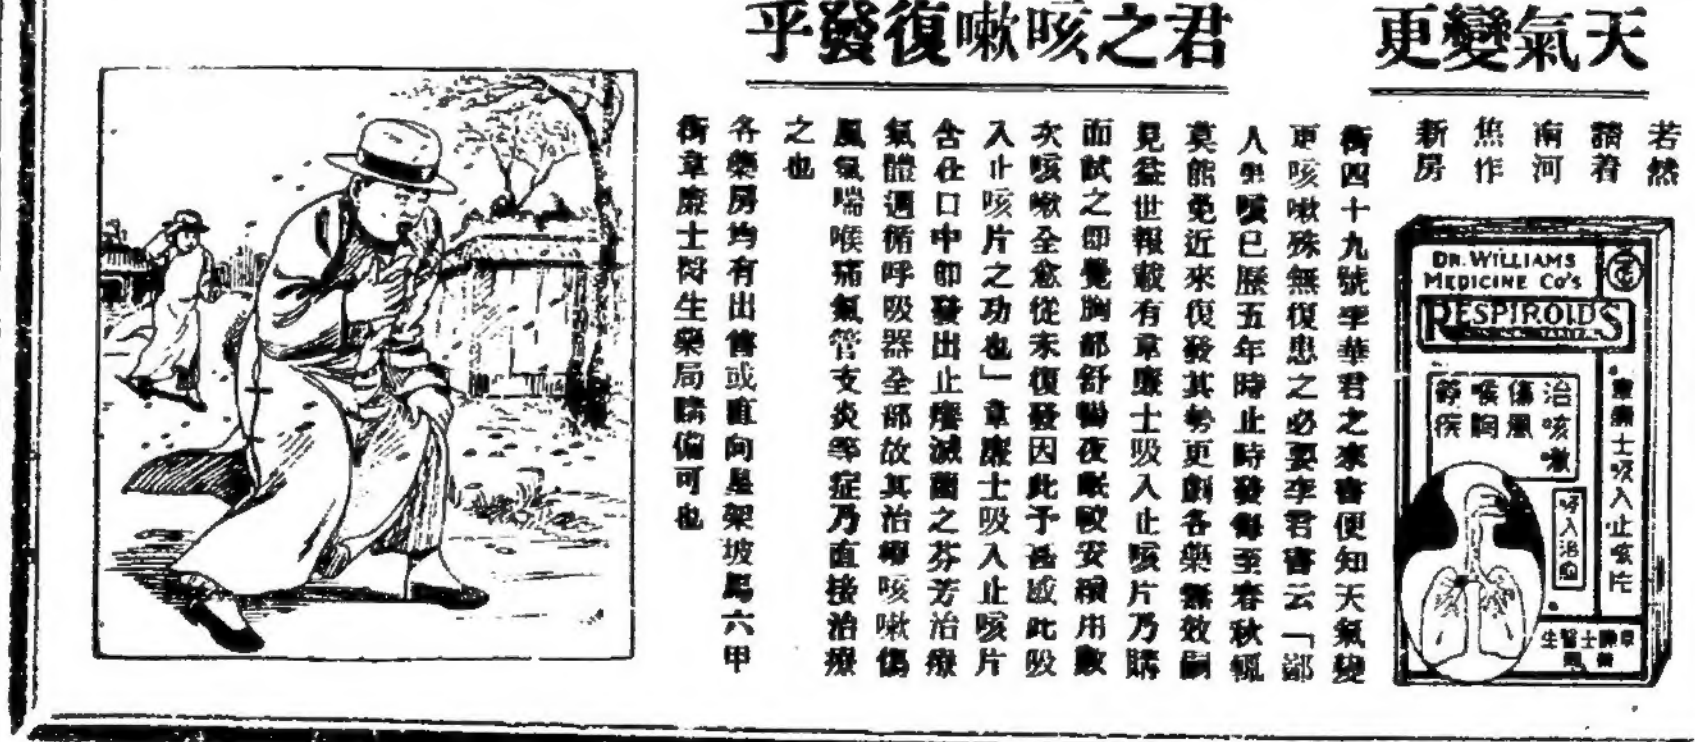 天氣變更
君之咳嗽復發乎
若然
請看
河南
焦作
新房
街四十九號李華君之來書便知天氣變
更咳嗽殊無復患之必要李君書云「鄙
人患咳已歷五年時止時發每至春秋輒
莫能免近來復發其勢更劇各藥無效嗣
見益世報載有韋廉士吸入止咳片乃購
而試之即覺胸部舒暢夜眠較安續用數
次咳嗽全愈從未復發因此予甚感此吸
入止咳片之功也」韋廉士吸入止咳片
含在口中即發出止癢滅菌之芬芳治療
氣體週循呼吸器全部故其治療咳嗽傷
風氣喘喉痛氣管支炎等症乃直接治療
之也
各藥房均有出售或直向星架坡馬六甲
街韋廉士醫生藥局購備可也
DR. WILLIAMS
MEDICINE Co's
RESPIROIDS
治咳嗽
傷風
喉胸
等疾
韋廉士吸入止咳片